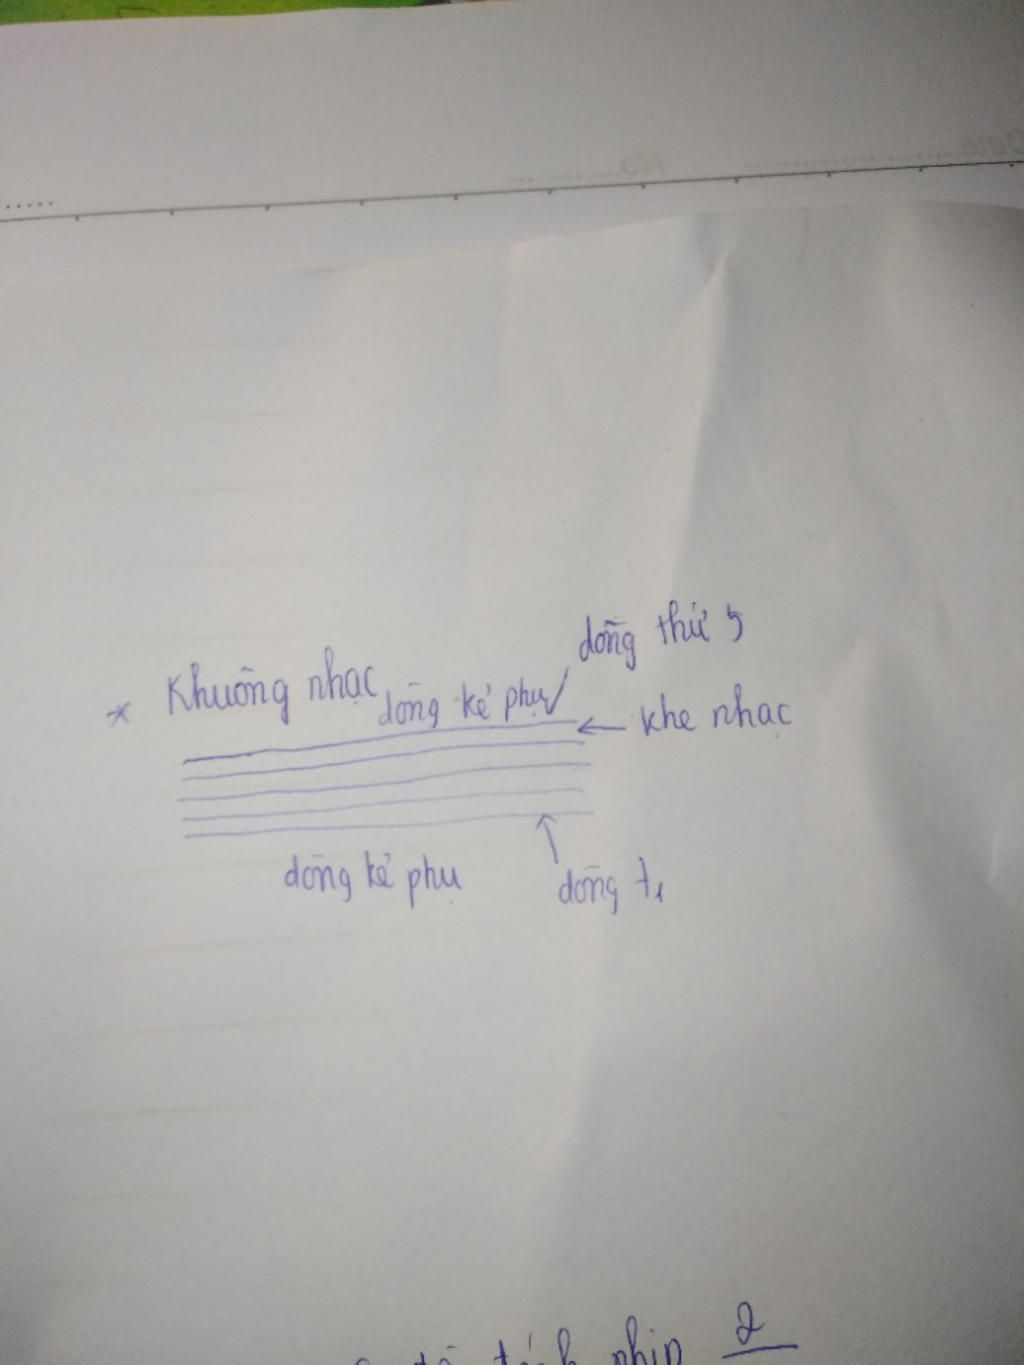 Date
No.
dòng thứ 5
* Khuông nhạc
dòng kẻ phụ
khe nhạc
dòng kẻ phụ
dòng t1
nhịp 2